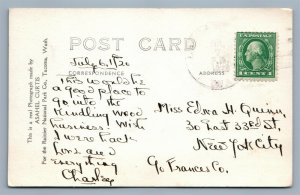 POST CARD
July 6, 1920
CORRESPONDENCE
ADDRESS
This would be
a good place to
go into the
Kindling wood
business. Wish
I were back
for a
everything
Charley
Miss Edna H. Quinn,
30 East 33rd St,
New York City
℅ Frances Co.
U.S. POSTAGE
1 CENT 1
This is a real Photograph made by
ASAHEL CURTIS
For the Rainier National Park Co., Tacoma, Wash.